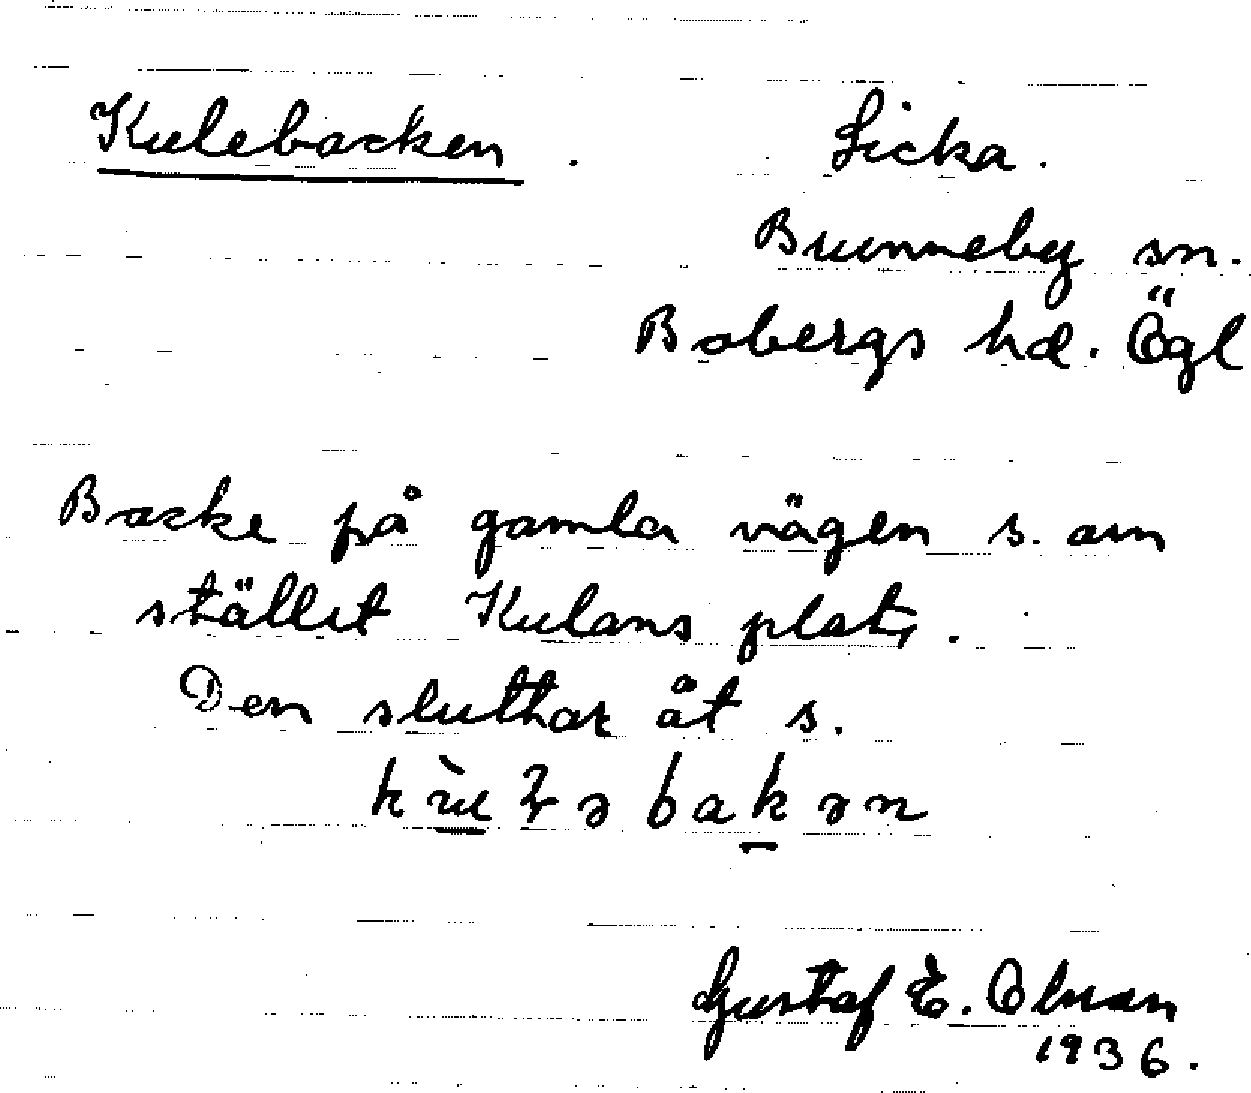 Kulebacken. Licka.
Brunneby sn.
Bobergs hd. Ögl
Backe på gamla vägen s. om
stället Kulans plats.
Den sluttar åt s.
Gustaf E. Olsson
1936.